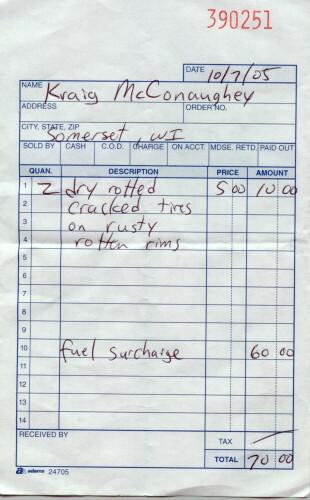 390251
DATE 10/7/05
NAME Kraig McConaughey
ADDRESS ORDER NO.
CITY, STATE, ZIP Somerset, WI
SOLD BY CASH C.O.D. CHARGE ON ACCT. MDSE. RETD. PAID OUT
QUAN. DESCRIPTION PRICE AMOUNT
1 2 dry rotted 5 00 10 00
2 cracked tires
3 on rusty
4 rotten rims
5
6
7
8
9
10 fuel surcharge 60 00
11
12
13
14
RECEIVED BY TAX
TOTAL 70 00
adams 24705